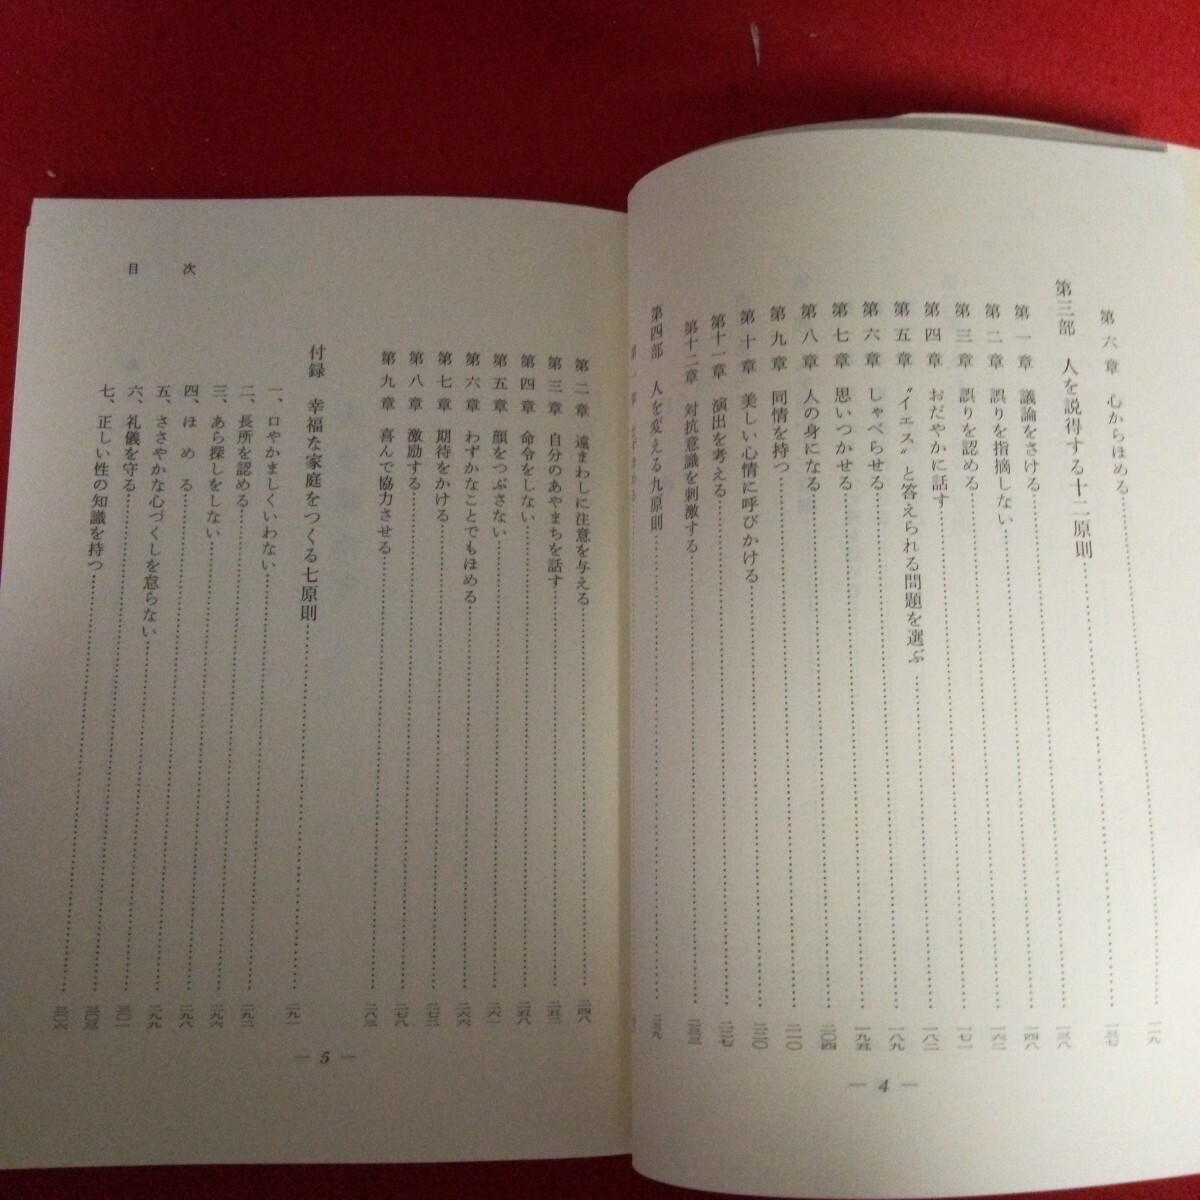 第六章 心からほめる……一一九
第三部 人を説得する十二原則……一三七
第一章 議論をさける……一三八
第二章 誤りを指摘しない……一四八
第三章 誤りを認める……一六二
第四章 おだやかに話す……一七一
第五章 〝イエス〟と答えられる問題を選ぶ……一八二
第六章 しゃべらせる……一八九
第七章 思いつかせる……一九五
第八章 人の身になる……二〇四
第九章 同情を持つ……二一〇
第十章 美しい心情に呼びかける……二二〇
第十一章 演出を考える……二二七
第十二章 対抗意識を刺激する……二三三
第四部 人を変える九原則……二三九
— 4 —
第二章 遠まわしに注意を与える……二四八
第三章 自分のあやまちを話す……二五二
第四章 命令をしない……二五八
第五章 顔をつぶさない……二六一
第六章 わずかなことでもほめる……二六六
第七章 期待をかける……二七二
第八章 激励する……二七八
第九章 喜んで協力させる……二八三
付録 幸福な家庭をつくる七原則……二九一
一、口やかましくいわない……二九二
二、長所を認める……二九六
三、あら探しをしない……二九八
四、ほめる……二九九
五、ささやかな心づくしを怠らない……三〇一
六、礼儀を守る……三〇三
七、正しい性の知識を持つ……三〇六
目次
— 5 —